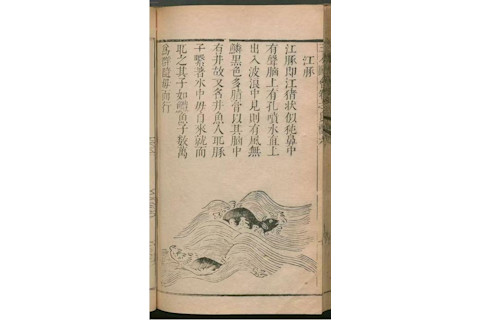 江豚
江豚即江猪狀似㹠鼻中
有聲腦上有孔噴水直上
出入波浪中見則有風無
鱗黑色多膏以其腦中
有井故又名井魚人取豚
子繫著水中毋自來就而
取之其子如鱧魚子數萬
為群隨母而行